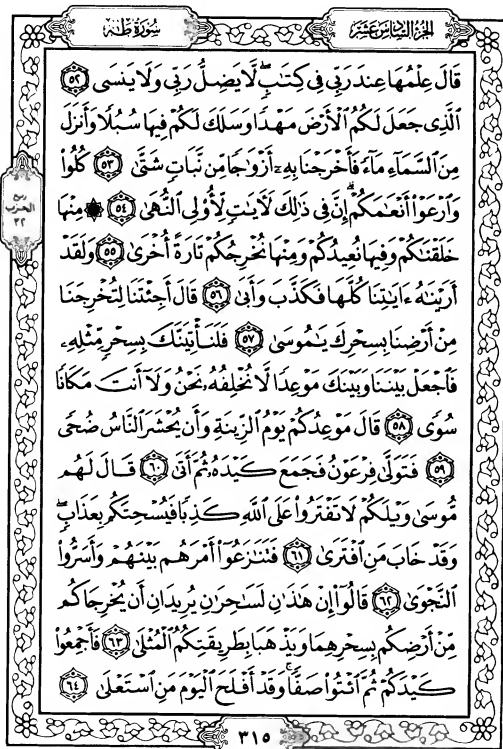 الجزء السادس عشر
سورة طه
قَالَ عِلْمُهَا عِندَ رَبِّي فِي كِتَٰبٍ ۖ لَّا يَضِلُّ رَبِّي وَلَا يَنسَى ٥٢
ٱلَّذِي جَعَلَ لَكُمُ ٱلْأَرْضَ مَهْدًا وَسَلَكَ لَكُمْ فِيهَا سُبُلًا وَأَنزَلَ
مِنَ ٱلسَّمَآءِ مَآءً فَأَخْرَجْنَا بِهِۦٓ أَزْوَٰجًا مِّن نَّبَاتٍ شَتَّىٰ ٥٣ كُلُوا۟
وَٱرْعَوْا۟ أَنْعَٰمَكُمْ ۗ إِنَّ فِي ذَٰلِكَ لَءَايَٰتٍ لِّأُو۟لِي ٱلنُّهَىٰ ٥٤ ۞ مِنْهَا
خَلَقْنَٰكُمْ وَفِيهَا نُعِيدُكُمْ وَمِنْهَا نُخْرِجُكُمْ تَارَةً أُخْرَىٰ ٥٥ وَلَقَدْ
أَرَيْنَٰهُ ءَايَٰتِنَا كُلَّهَا فَكَذَّبَ وَأَبَىٰ ٥٦ قَالَ أَجِئْتَنَا لِتُخْرِجَنَا
مِنْ أَرْضِنَا بِسِحْرِكَ يَٰمُوسَىٰ ٥٧ فَلَنَأْتِيَنَّكَ بِسِحْرٍ مِّثْلِهِۦ
فَٱجْعَلْ بَيْنَنَا وَبَيْنَكَ مَوْعِدًا لَّا نُخْلِفُهُۥ نَحْنُ وَلَآ أَنتَ مَكَانًا
سُوًى ٥٨ قَالَ مَوْعِدُكُمْ يَوْمُ ٱلزِّينَةِ وَأَن يُحْشَرَ ٱلنَّاسُ ضُحًى
٥٩ فَتَوَلَّىٰ فِرْعَوْنُ فَجَمَعَ كَيْدَهُۥ ثُمَّ أَتَىٰ ٦٠ قَالَ لَهُم
مُّوسَىٰ وَيْلَكُمْ لَا تَفْتَرُوا۟ عَلَى ٱللَّهِ كَذِبًا فَيُسْحِتَكُم بِعَذَابٍ ۖ
وَقَدْ خَابَ مَنِ ٱفْتَرَىٰ ٦١ فَتَنَٰزَعُوٓا۟ أَمْرَهُم بَيْنَهُمْ وَأَسَرُّوا۟
ٱلنَّجْوَىٰ ٦٢ قَالُوٓا۟ إِنْ هَٰذَٰنِ لَسَٰحِرَٰنِ يُرِيدَانِ أَن يُخْرِجَاكُم
مِّنْ أَرْضِكُم بِسِحْرِهِمَا وَيَذْهَبَا بِطَرِيقَتِكُمُ ٱلْمُثْلَىٰ ٦٣ فَأَجْمِعُوا۟
كَيْدَكُمْ ثُمَّ ٱئْتُوا۟ صَفًّا ۚ وَقَدْ أَفْلَحَ ٱلْيَوْمَ مَنِ ٱسْتَعْلَىٰ ٦٤
ربع
الحزب
٣٢
٣١٥